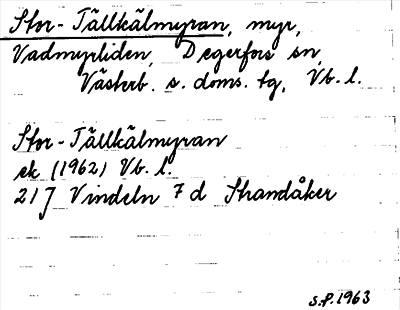 Stor-Tällkälmyran, myr,
Vadmyrliden, Degerfors sn,
Västerb. s. doms. tg, Vb. l.
Stor-Tällkälmyran
ek (1962) Vb. l.
21J Vindeln 7 d Strandåker
S.P. 1963